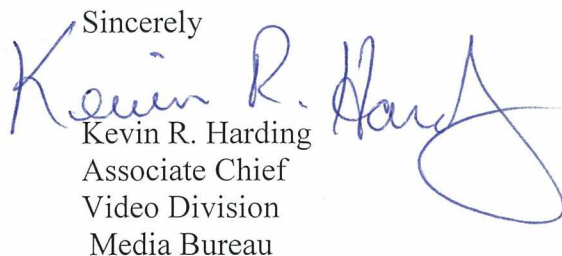 Sincerely
Kevin R. Hardy
Kevin R. Harding
Associate Chief
Video Division
Media Bureau